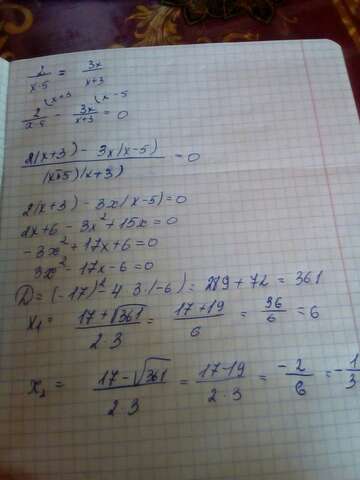 2/(x-5) = 3x/(x+3)
2/(x-5) (x+3 - 3x/(x+3) (x-5 = 0
(2(x+3) - 3x(x-5))/((x-5)(x+3)) = 0
2(x+3) - 3x(x-5) = 0
2x+6 - 3x² + 15x = 0
-3x² + 17x + 6 = 0
3x² - 17x - 6 = 0
D = (-17)² - 4·3·(-6) = 289 + 72 = 361
x₁ = (17+√361)/(2·3) = (17+19)/6 = 36/6 = 6
x₂ = (17-√361)/(2·3) = (17-19)/(2·3) = -2/6 = -1/3